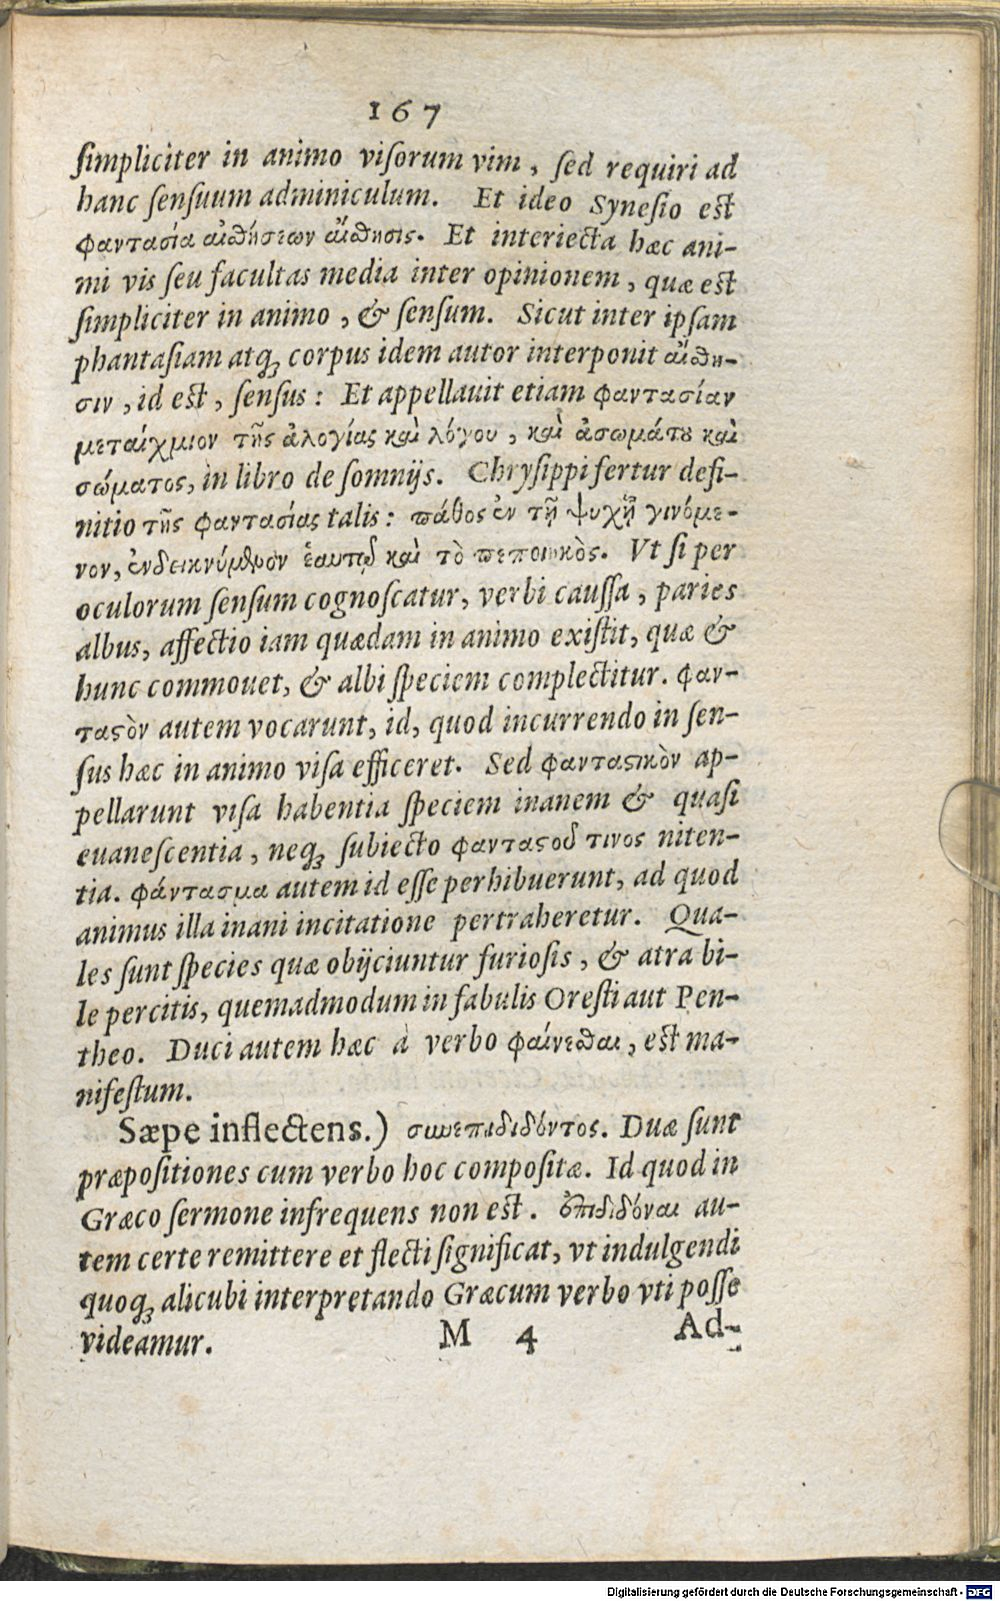 167
simpliciter in animo visorum vim, sed requiri ad
hanc sensuum adminiculum. Et ideo Synesio est
φαντασία αἰσθήσεων αἴσθησις. Et interiecta hæc ani-
mi vis seu facultas media inter opinionem, quæ est
simpliciter in animo, & sensum. Sicut inter ipsam
phantasiam atq; corpus idem autor interponit αἴσθη-
σιν, id est, sensus: Et appellauit etiam φαντασίαν
μεταίχμιον τῆς ἀλογίας καὶ λόγου, καὶ ἀσωμάτου καὶ
σώματος, in libro de somnijs. Chrysippi fertur defi-
nitio τῆς φαντασίας talis: πάθος ἐν τῇ ψυχῇ γινόμε-
νον, ἐνδεικνύμενον ἑαυτῷ καὶ τὸ πεποιηκὸς. Vt si per
oculorum sensum cognoscatur, verbi caussa, paries
albus, affectio iam quædam in animo existit, quæ &
hunc commouet, & albi speciem complectitur. φαν-
ταστὸν autem vocarunt, id, quod incurrendo in sen-
sus hæc in animo visa efficeret. Sed φανταστικὸν ap-
pellarunt visa habentia speciem inanem & quasi
euanescentia, neq; subiecto φανταστοῦ τινος niten-
tia. φάντασμα autem id esse perhibuerunt, ad quod
animus illa inani incitatione pertraheretur. Qua-
les sunt species quæ obijciuntur furiosis, & atra bi-
le percitis, quemadmodum in fabulis Oresti aut Pen-
theo. Duci autem hæc à verbo φαίνεσθαι, est ma-
nifestum.
Sæpe inflectens.) συνεπιδιδόντος. Duæ sunt
præpositiones cum verbo hoc compositæ. Id quod in
Græco sermone infrequens non est. ἐπιδιδόναι au-
tem certe remittere et flecti significat, vt indulgendi
quoq; alicubi interpretando Græcum verbo vti posse
videamur. M 4 Ad-
Digitalisierung gefördert durch die Deutsche Forschungsgemeinschaft - DFG